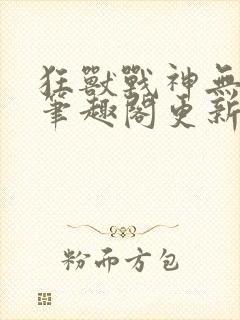 狂獸戰神無
筆趣閣更新
粉而方包